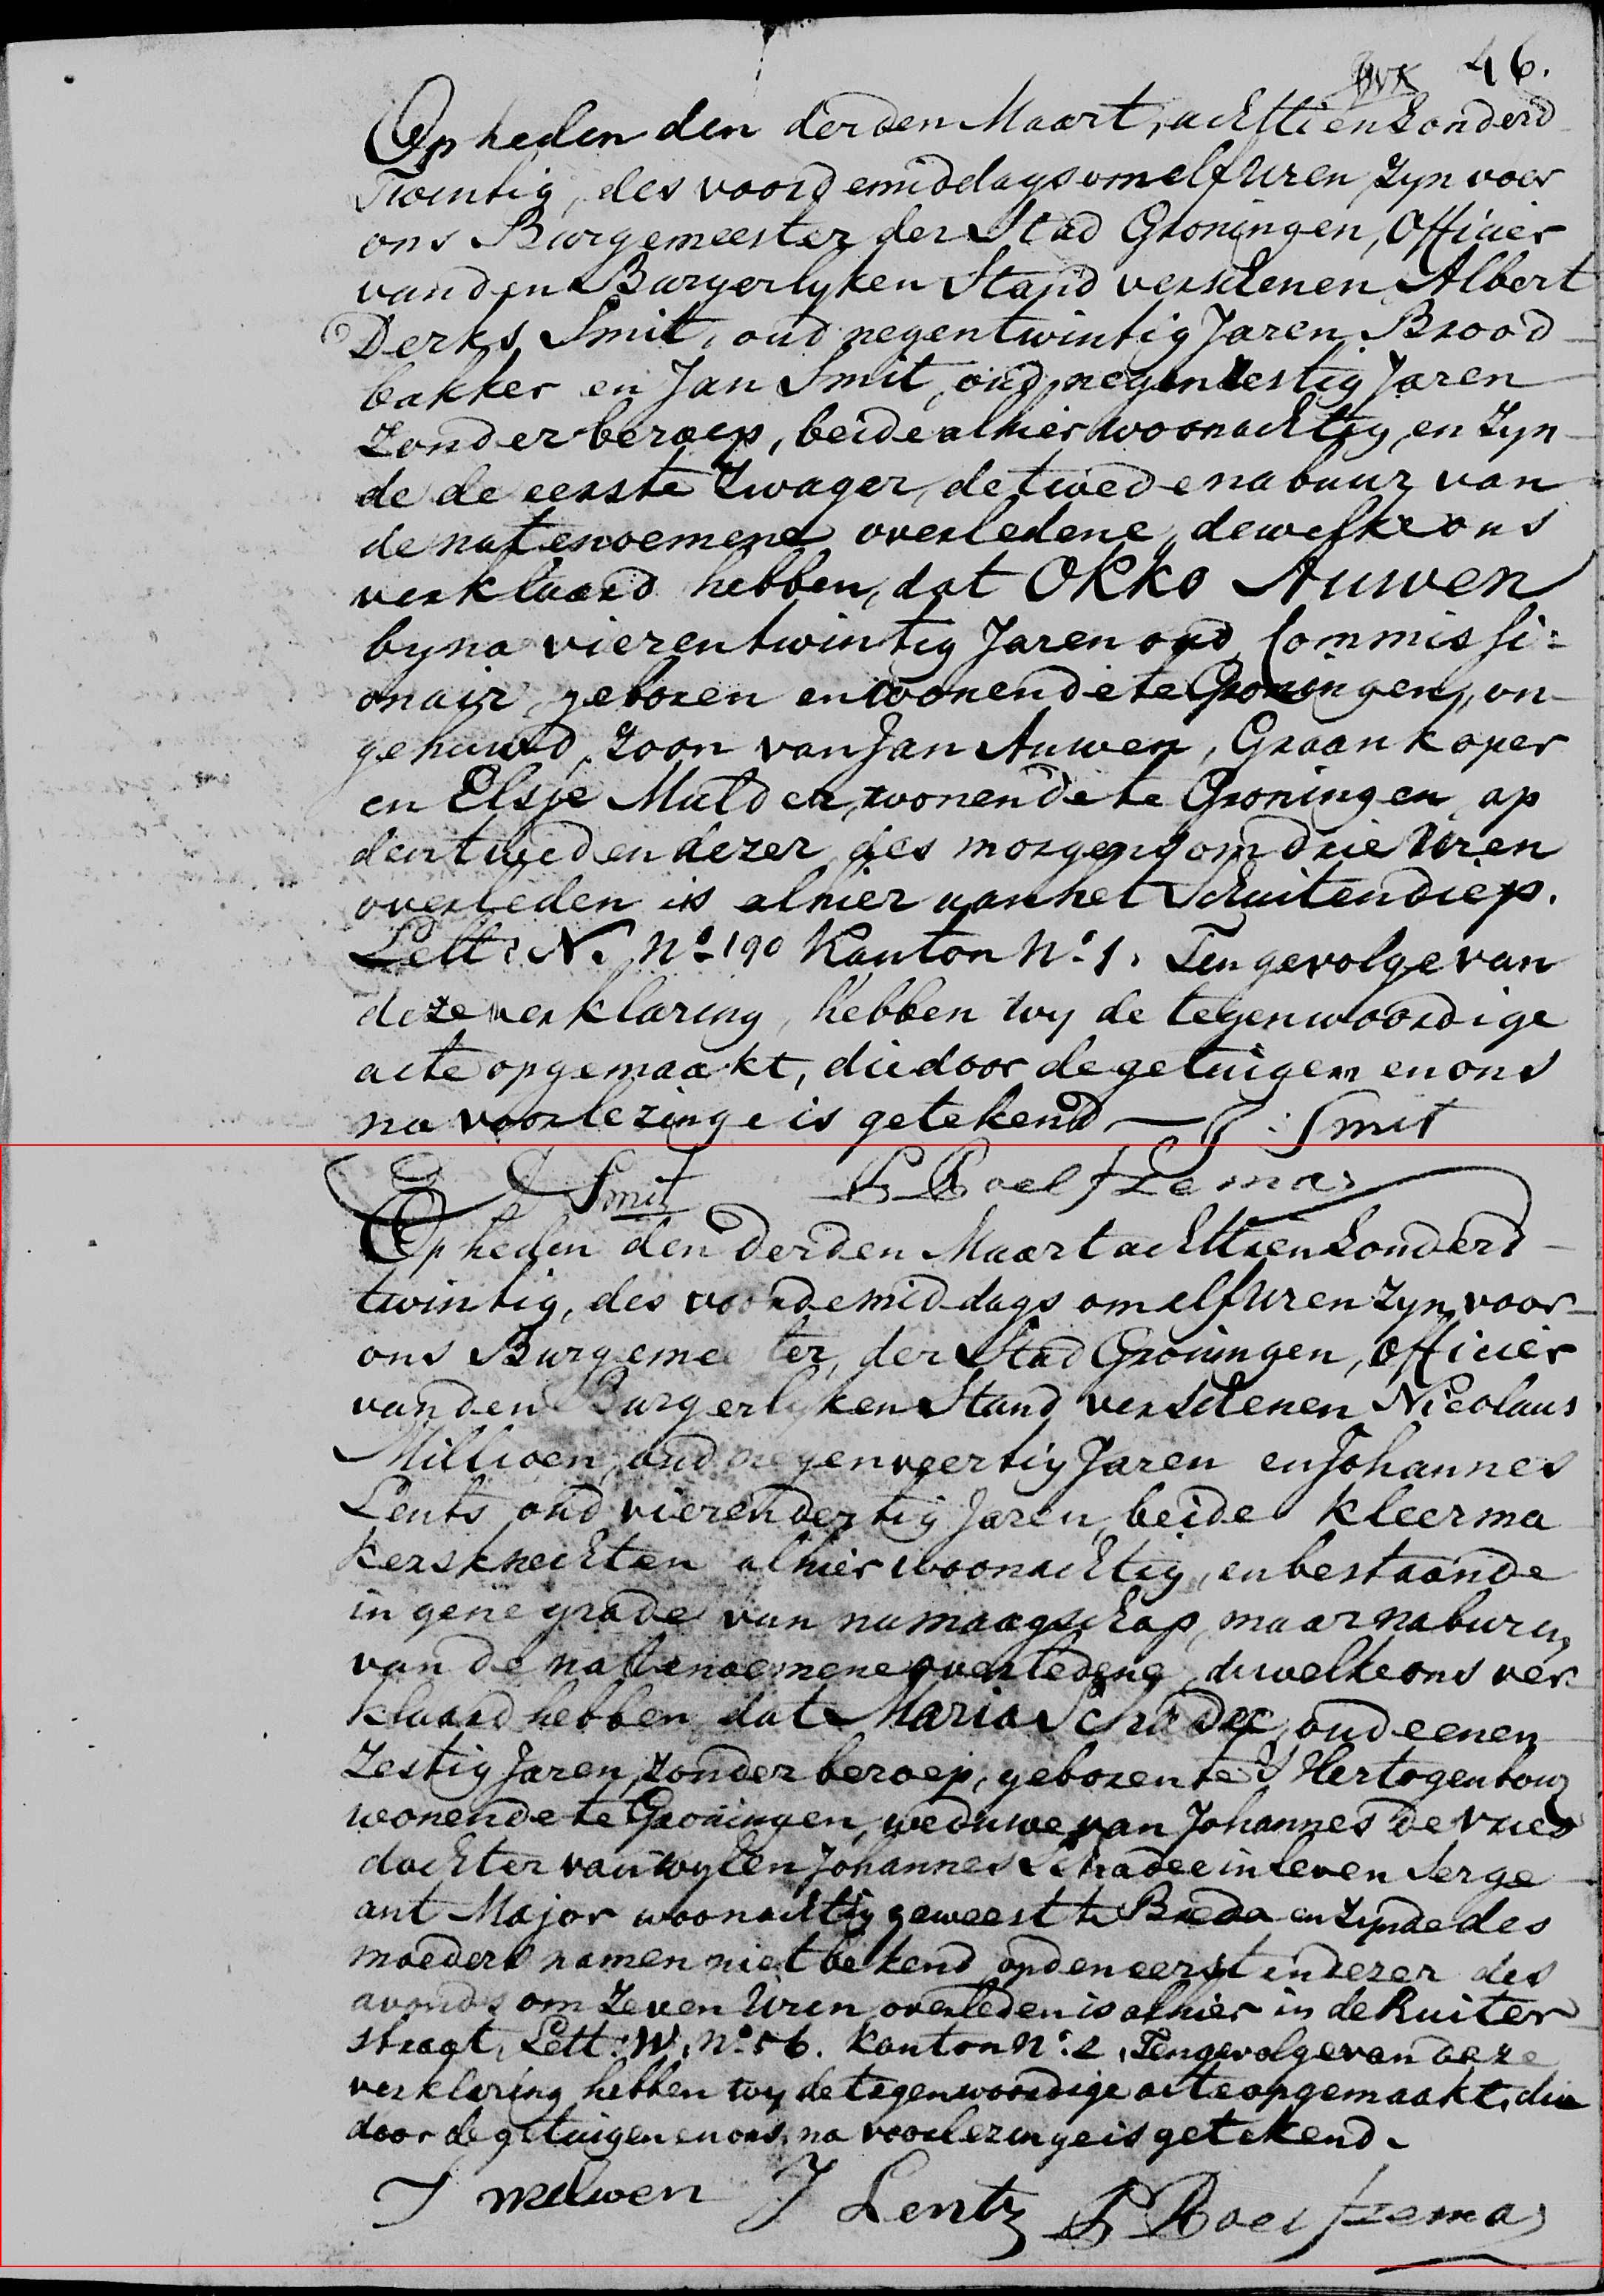 46.
Op heden den derden Maart, achttienhonderd
Twintig, des voordemiddags om elf Uren, zyn voor
ons Burgemeester der Stad Groningen, Officier
van den Burgerlyken Stand verschenen Albert
Derks Smit, oud negentwintig Jaren Brood
bakker en Jan Smit, oud negenzestig Jaren
zonder beroep, beide alhier woonachtig, en zyn
de de eerste Zwager, de twede nabuur van
de natenoemene overledene, dewelke ons
verklaard hebben, dat Okko Auwen
byna vierentwintig Jaren oud, Commissi=
onair, geboren en wonende te Groningen, on
gehuwd, zoon van Jan Auwen, Graankoper
en Elsje Mulder, wonende te Groningen, op
den tweden dezer, des morgens om drie Uren
overleden is alhier aan het Schuitendiep.
Lett: N. No. 190 Kanton No. 1. Ten gevolge van
deze verklaring, hebben wy de tegenwoordige
acte opgemaakt, die door de getuigen en ons
na voorlezinge is getekend — J: Smit
A D Smit P Roelfzema
Op heden den derden Maart achttienhonderd
twintig, des voordemiddags om elf Uren zyn voor
ons Burgemeester, der Stad Groningen, Officier
van den Burgerlyken Stand verschenen Nicolaus
Millioen, oud negenveertig Jaren en Johannes
Lents oud vierendertig Jaren, beide kleerma
kersknechten alhier woonachtig, en bestaande
in gene grade van namaagschap, maar naburen
van de natenoemene overledene, dewelke ons ver
klaard hebben dat Maria Schadee, oud eenen
Zestig Jaren, zonder beroep, geboren te 's Hertogenbosch
wonende te Groningen, weduwe van Johannes de Vries
dochter van wylen Johannes Schadee in leven Serge
ant Major woonachtig geweest te Breda en zynde des
moeders namen niet bekend op den eersten dezer des
avonds om zeven Uren overleden is alhier in de Ruiter
straat, Lett: W. No. 56. Kanton No. 2. Ten gevolge van deze
verklaring hebben wy de tegenwoordige acte opgemaakt, die
door de getuigen en ons, na voorlezinge is getekend.
J Lentz P Roelfzema